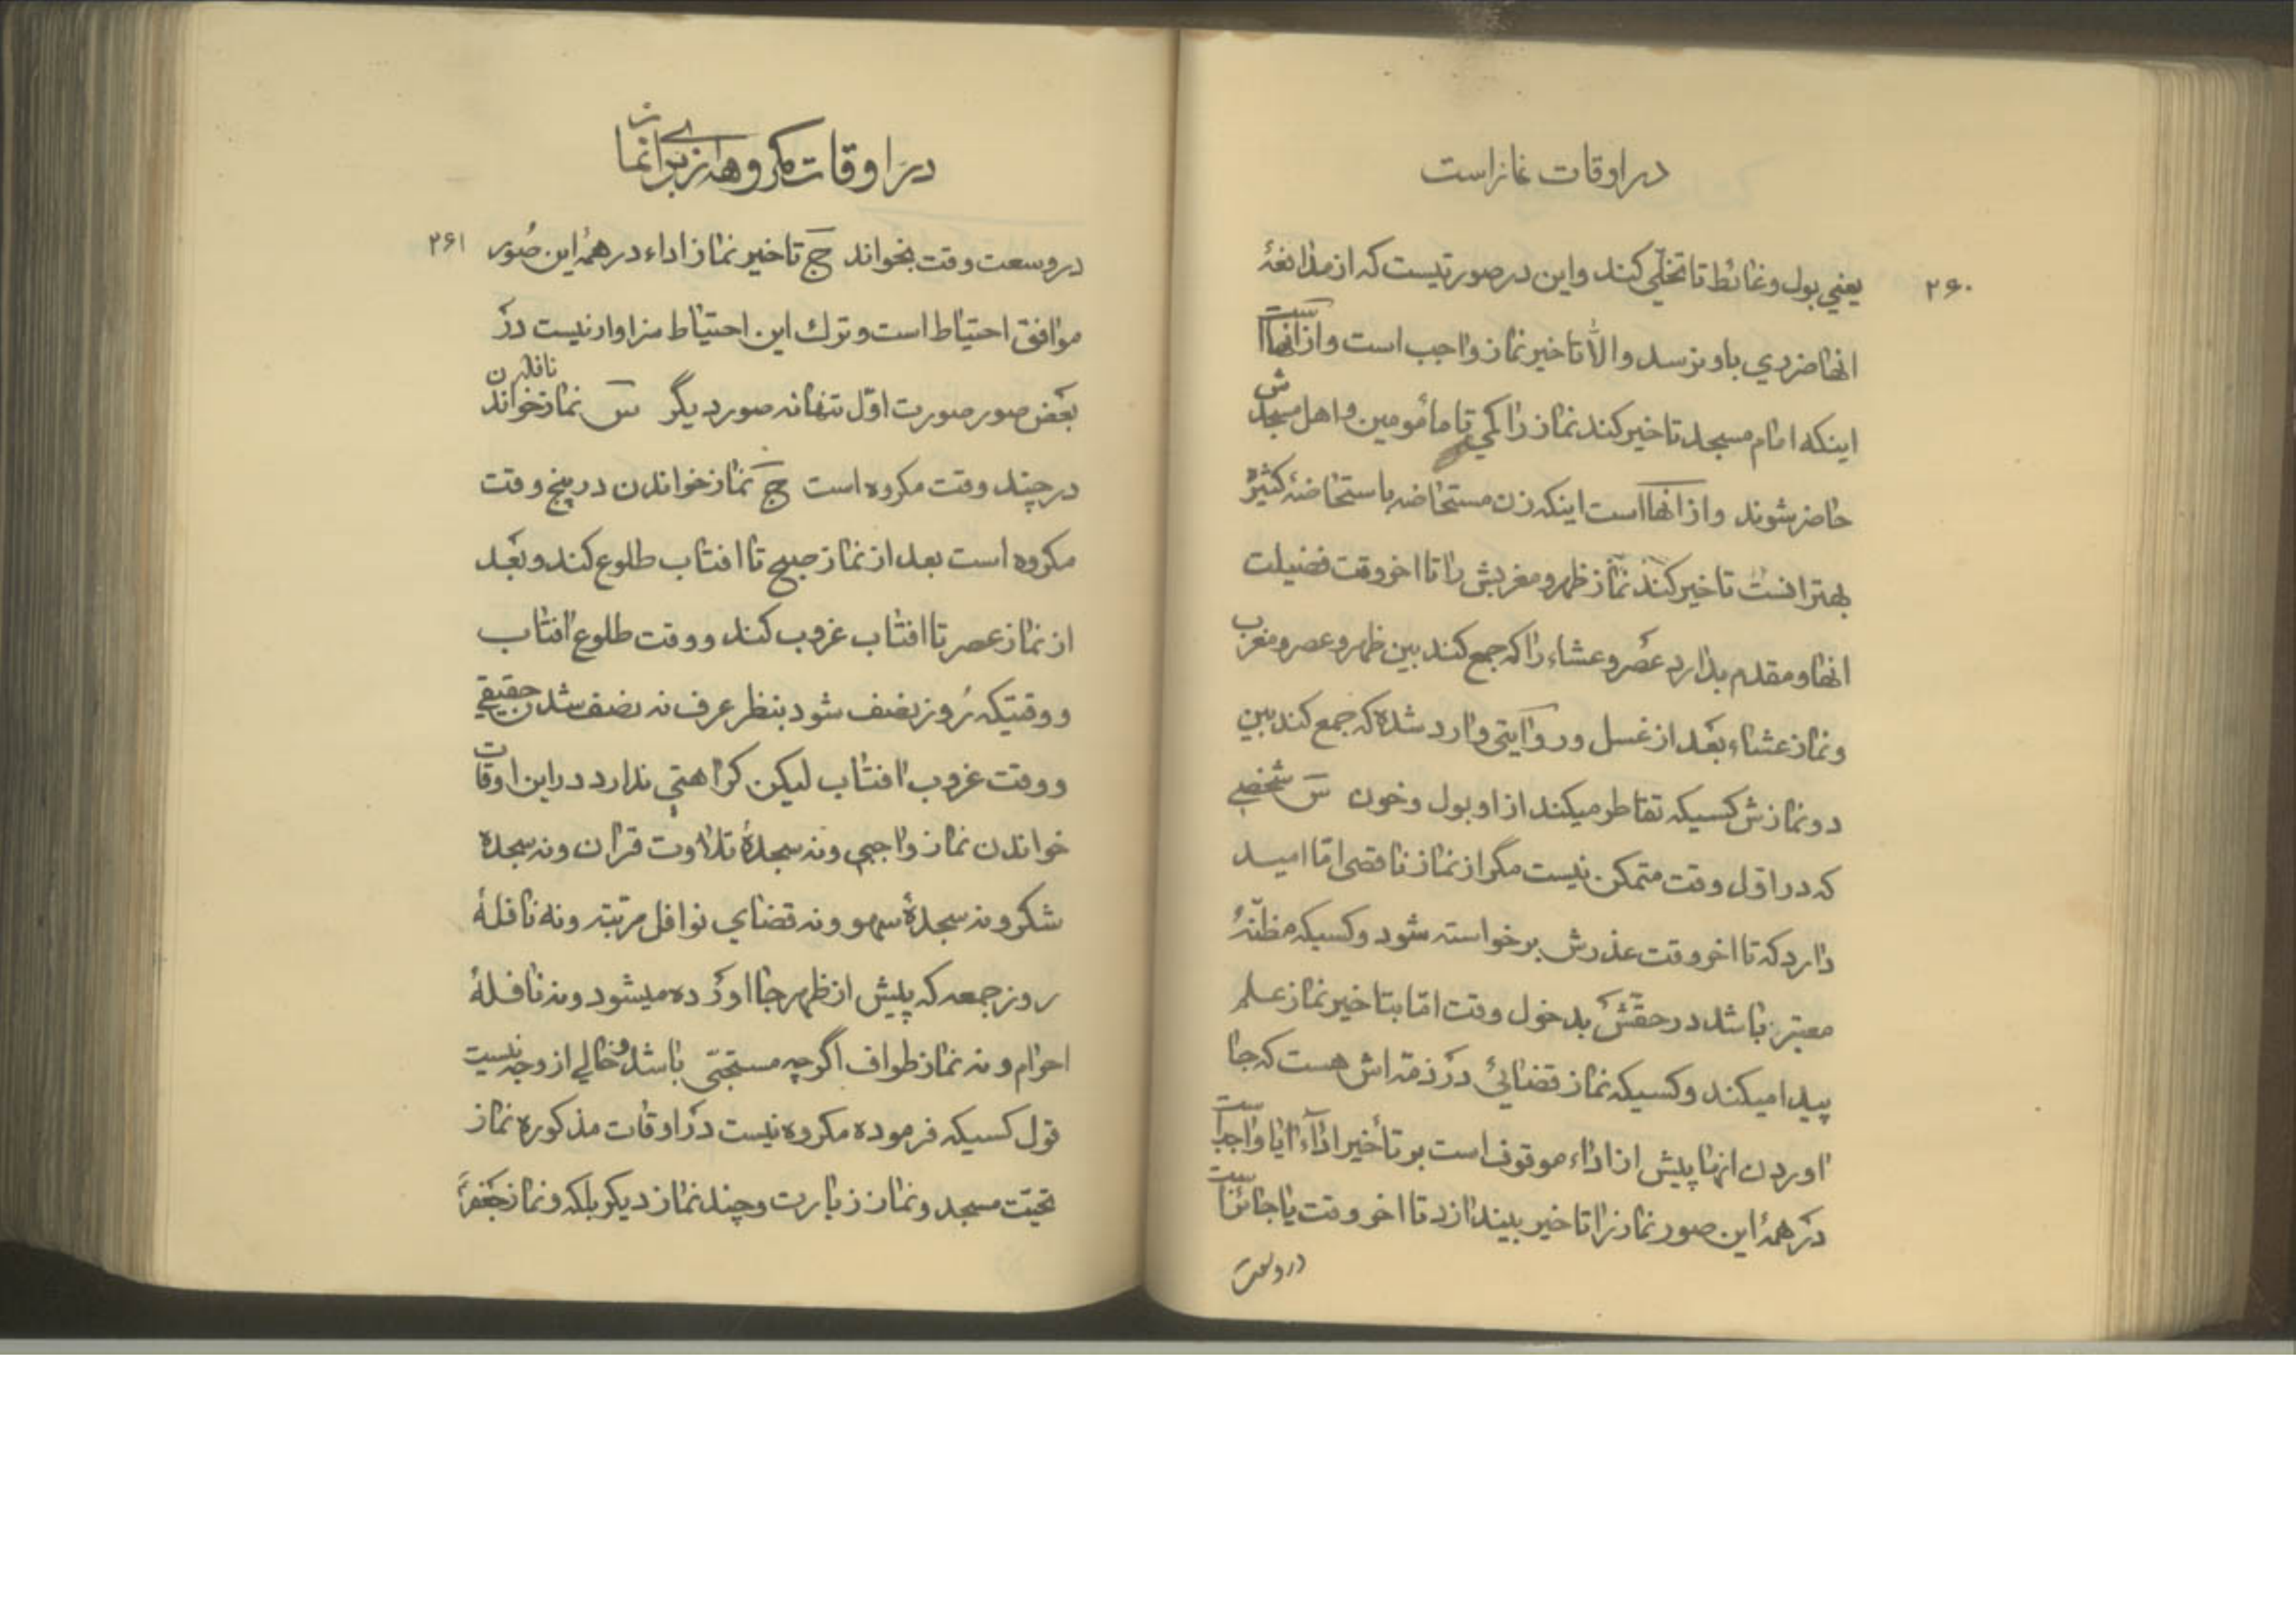 در اوقات نماز است
۲۶۰
یعنی بول و غائط تا تخلّی کند و این در صورتیست که از مدافعهٔ
انها ضرری باو نرسد والّا تاخیر نماز واجب است و از انها است
اینکه امام مسجد تاخیر کند نماز را کمی تا مأمومین و اهل مسجدش
حاضر شوند و از انها است اینکه زن مستحاضه باستحاضهٔ کثیره
بهتر انست تاخیر کند نماز ظهر و مغربش را تا اخر وقت فضیلت
انها و مقدم بدارد عصر و عشاء را که جمع کند بین ظهر و عصر و مغرب
و نماز عشاء بعد از غسل و روایتی وارد شده که جمع کند بین
دو نمازش کسیکه تقاطر میکند از او بول و خون س شخصے
که در اوّل وقت متمکن نیست مگر از نماز ناقصی امّا امید
دارد که تا اخر وقت عذرش برخواسته شود و کسیکه مظنّهٔ
معتبره باشد در حقّش بدخول وقت امّا بتاخیر نماز علم
پیدا میکند و کسیکه نماز قضائی در ذمّه اش هست که جا
اوردن انها پیش از اداء موقوف است بر تأخیر اداء ایا واجب است
در همهٔ این صور نماز را تاخیر بیندازد تا اخر وقت یا جائز است
در وسعت
در اوقات مکروهه از برای نماز
۲۶۱
در وسعت وقت بخواند ج تاخیر نماز اداء در همهٔ این صُور
موافق احتیاط است و ترك این احتیاط سزاوار نیست در
بعض صور صورت اوّل تنها نه صور دیگر س نماز نافله خواندن
در چند وقت مکروه است ج نماز خواندن در پنج وقت
مکروه است بعد از نماز صبح تا افتاب طلوع کند و بعد
از نماز عصر تا افتاب غروب کند و وقت طلوع افتاب
و وقتیکه رُوز نصف شود بنظر عرف نه نصف شدن حقیقے
و وقت غروب افتاب لیکن کراهتی ندارد در این اوقات
خواندن نماز واجبی و نه سجدهٔ تلاوت قران و نه سجدهٔ
شکر و نه سجدهٔ سهو و نه قضای نوافل مرتبه و نه نافلهٔ
روز جمعه که پیش از ظهر جا اورده میشود و نه نافلهٔ
احرام و نه نماز طواف اگرچه مستحبّی باشد و خالے از وجه نیست
قول کسیکه فرموده مکروه نیست در اوقات مذکوره نماز
تحیّت مسجد و نماز زیارت و چند نماز دیکر بلکه و نماز جعفر